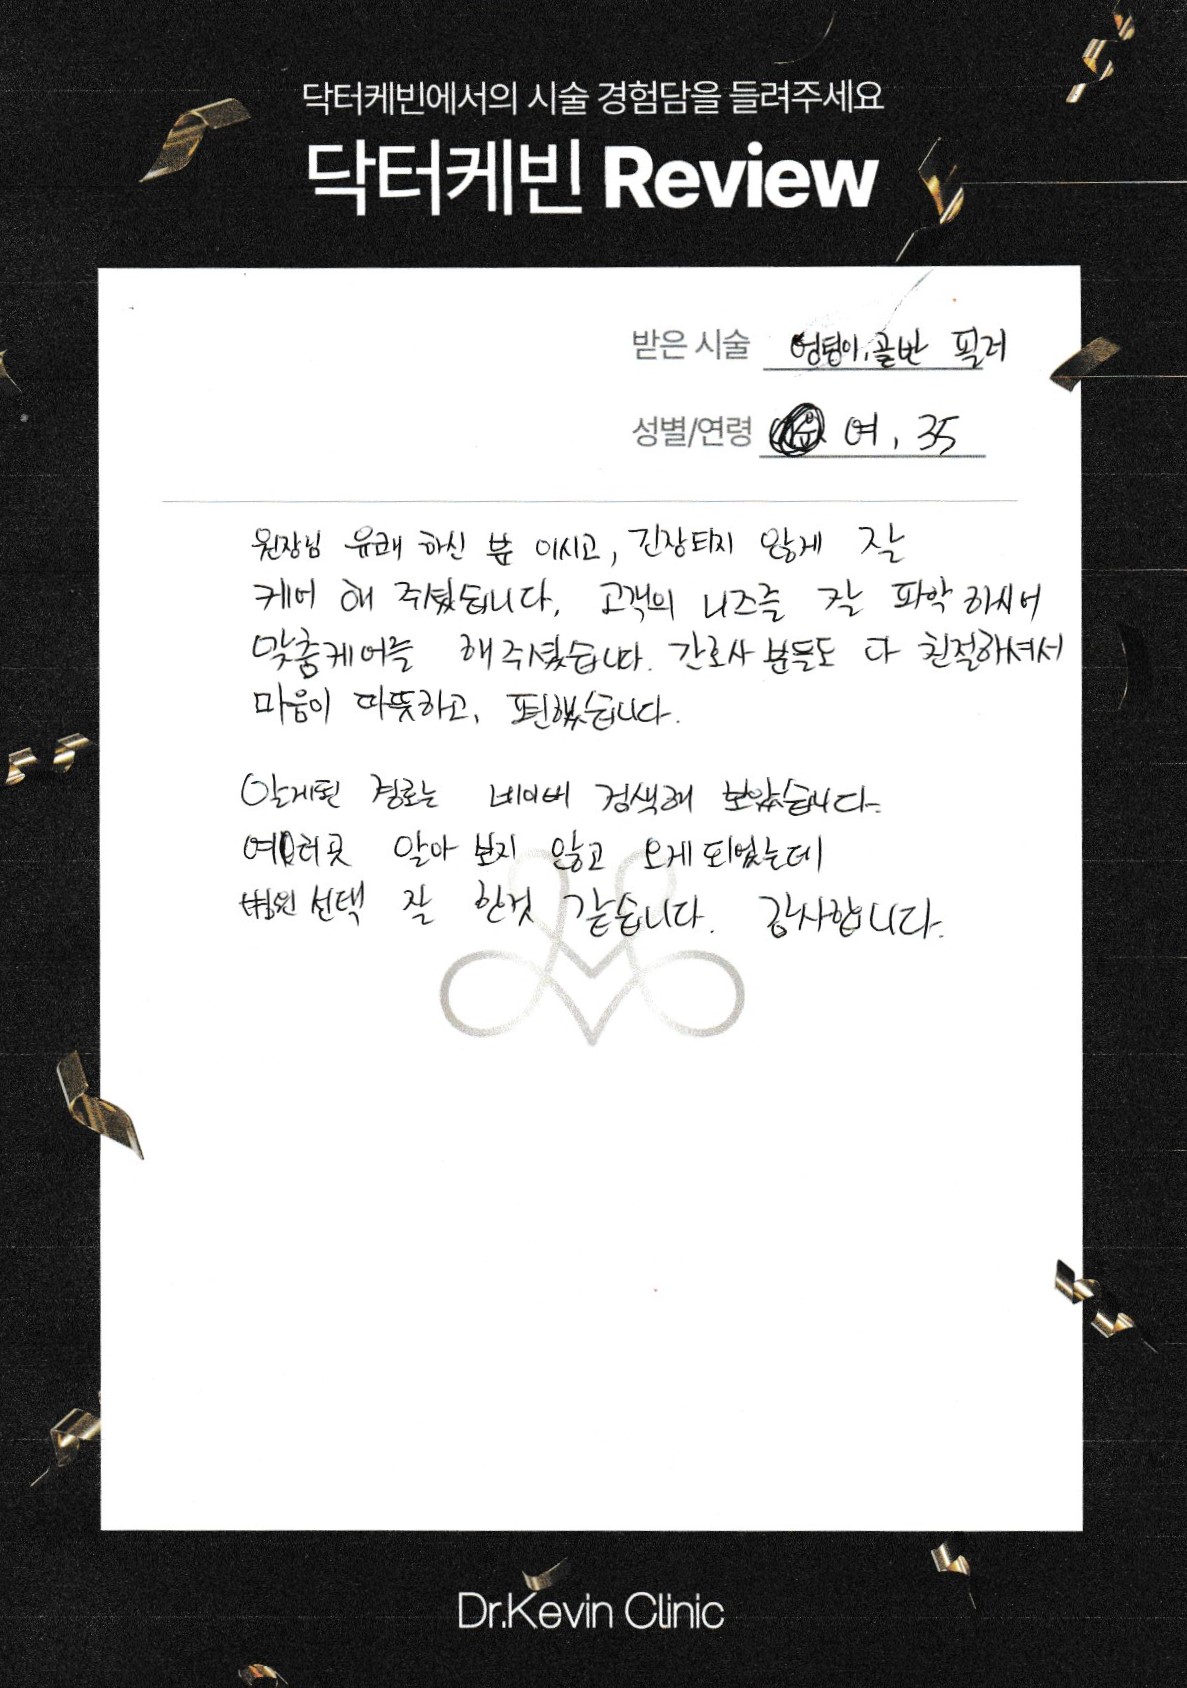 닥터케빈에서의 시술 경험담을 들려주세요
닥터케빈 Review
받은 시술 엉덩이, 골반 필러
성별/연령 여, 35
원장님 유쾌 하신 분 이시고, 긴장되지 않게 잘
케어 해 주셨습니다. 고객의 니즈를 잘 파악 하시어
맞춤케어를 해주셨습니다. 간호사 분들도 다 친절하셔서
마음이 따뜻하고, 편했습니다.
알게된 경로는 네이버 검색해 보았습니다.
여러곳 알아 보지 않고 오게 되었는데
병원 선택 잘 한것 같습니다. 감사합니다.
Dr.Kevin Clinic